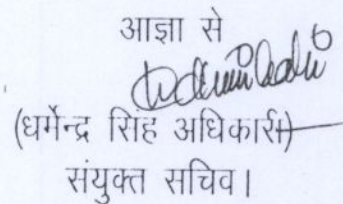 आज्ञा से
(धर्मेन्द्र सिंह अधिकारी)
संयुक्त सचिव।